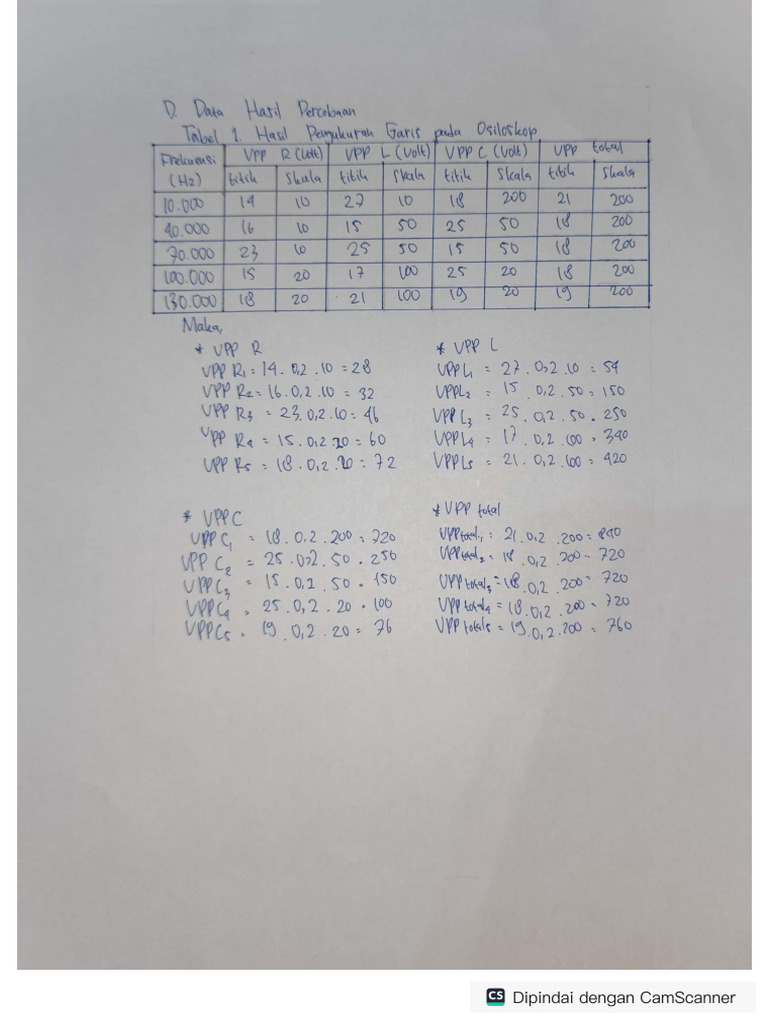 D. Data Hasil Percobaan
Tabel 1. Hasil Pengukuran Garis pada Osiloskop
Frekuensi (Hz) VPP R (Volt) VPP L (Volt) VPP C (Volt) VPP total
titik skala titik skala titik skala titik skala
10.000 14 10 27 10 18 200 21 200
40.000 16 10 15 50 25 50 18 200
70.000 23 10 25 50 15 50 18 200
100.000 15 20 17 100 25 20 18 200
130.000 18 20 21 100 19 20 19 200
Maka,
* VPP R
VPP R1 = 14 . 0,2 . 10 = 28
VPP R2 = 16 . 0,2 . 10 = 32
VPP R3 = 23 . 0,2 . 10 = 46
VPP R4 = 15 . 0,2 . 20 = 60
VPP R5 = 18 . 0,2 . 20 = 72
* VPP L
VPP L1 = 27 . 0,2 . 10 = 54
VPP L2 = 15 . 0,2 . 50 = 150
VPP L3 = 25 . 0,2 . 50 = 250
VPP L4 = 17 . 0,2 . 100 = 340
VPP L5 = 21 . 0,2 . 100 = 420
* VPP C
VPP C1 = 18 . 0,2 . 200 = 720
VPP C2 = 25 . 0,2 . 50 = 250
VPP C3 = 15 . 0,2 . 50 = 150
VPP C4 = 25 . 0,2 . 20 = 100
VPP C5 = 19 . 0,2 . 20 = 76
* VPP total
VPP total1 = 21 . 0,2 . 200 = 840
VPP total2 = 18 . 0,2 . 200 = 720
VPP total3 = 18 . 0,2 . 200 = 720
VPP total4 = 18 . 0,2 . 200 = 720
VPP total5 = 19 . 0,2 . 200 = 760
CS Dipindai dengan CamScanner